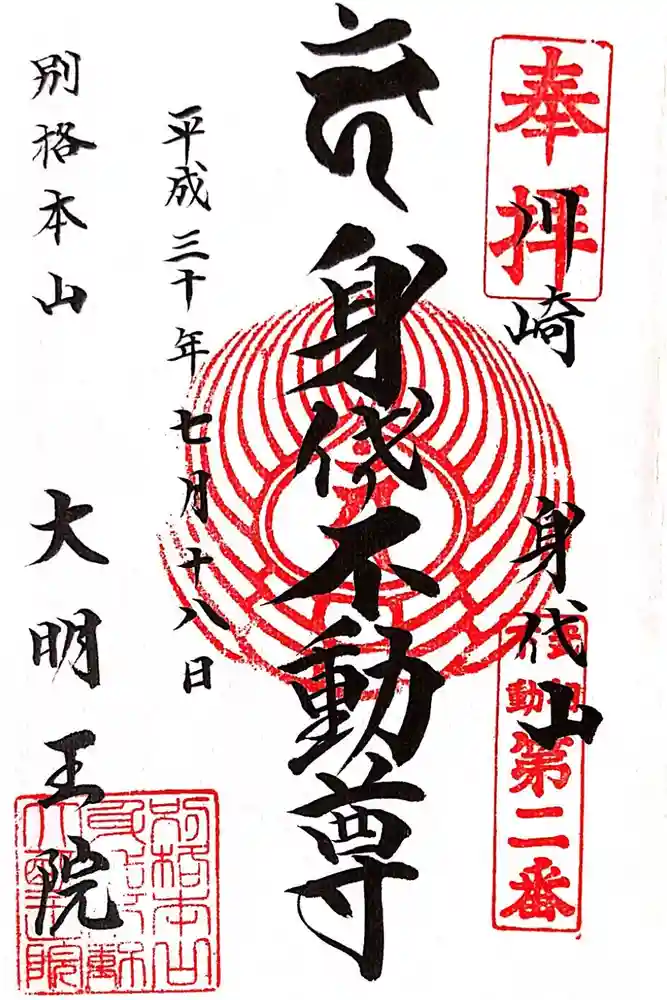 奉拝
川崎 身代山
不動 武相 第二番
身代不動尊
平成三十年七月十八日
別格本山 大明王院
別格本山
身代不動
大明王院